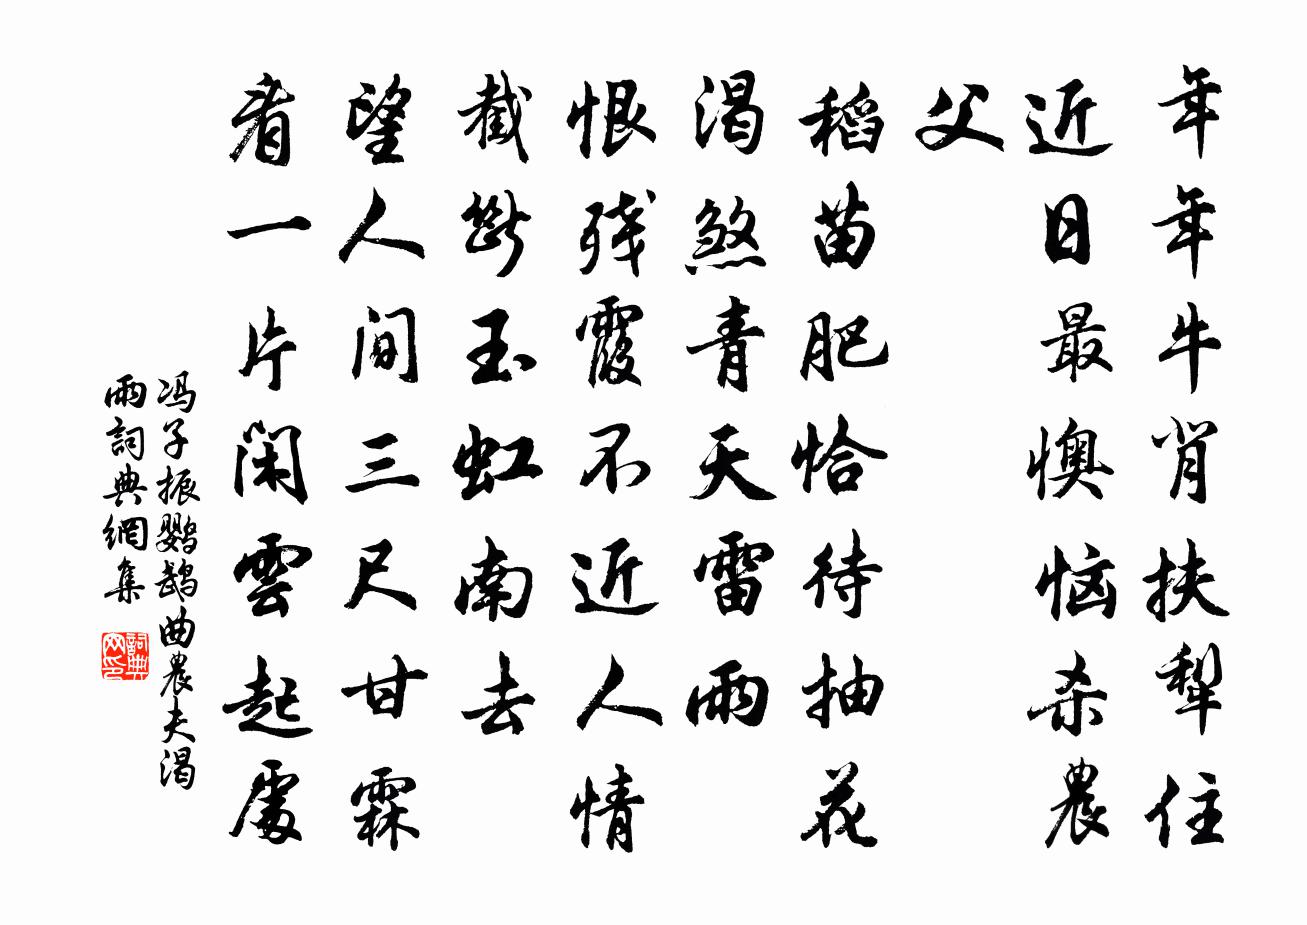 年年牛背扶犁住
近日最懊恼杀農
父
稻苗肥恰待抽花
渴煞青天雷雨
恨残霞不近人情
截斷玉虹南去
望人间三尺甘霖
看一片闲雲起處
冯子振鹦鵡曲農夫渴
雨詞典網集
詞典网印